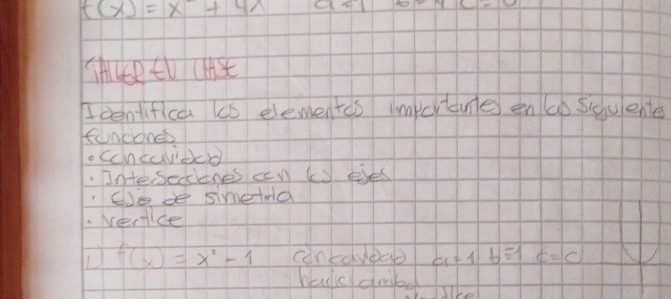 f(x) = x² + 4x a=1 b=4 c=0
TALLER EN CLASE
Identifica los elementos importantes en las siguiente
funciones.
• Concavidad
• Intersecciones con los ejes
• Eje de simetria
• Vertice
1) f(x) = x² - 1 concavidad a=1 b=1 c=0
hacia arriba